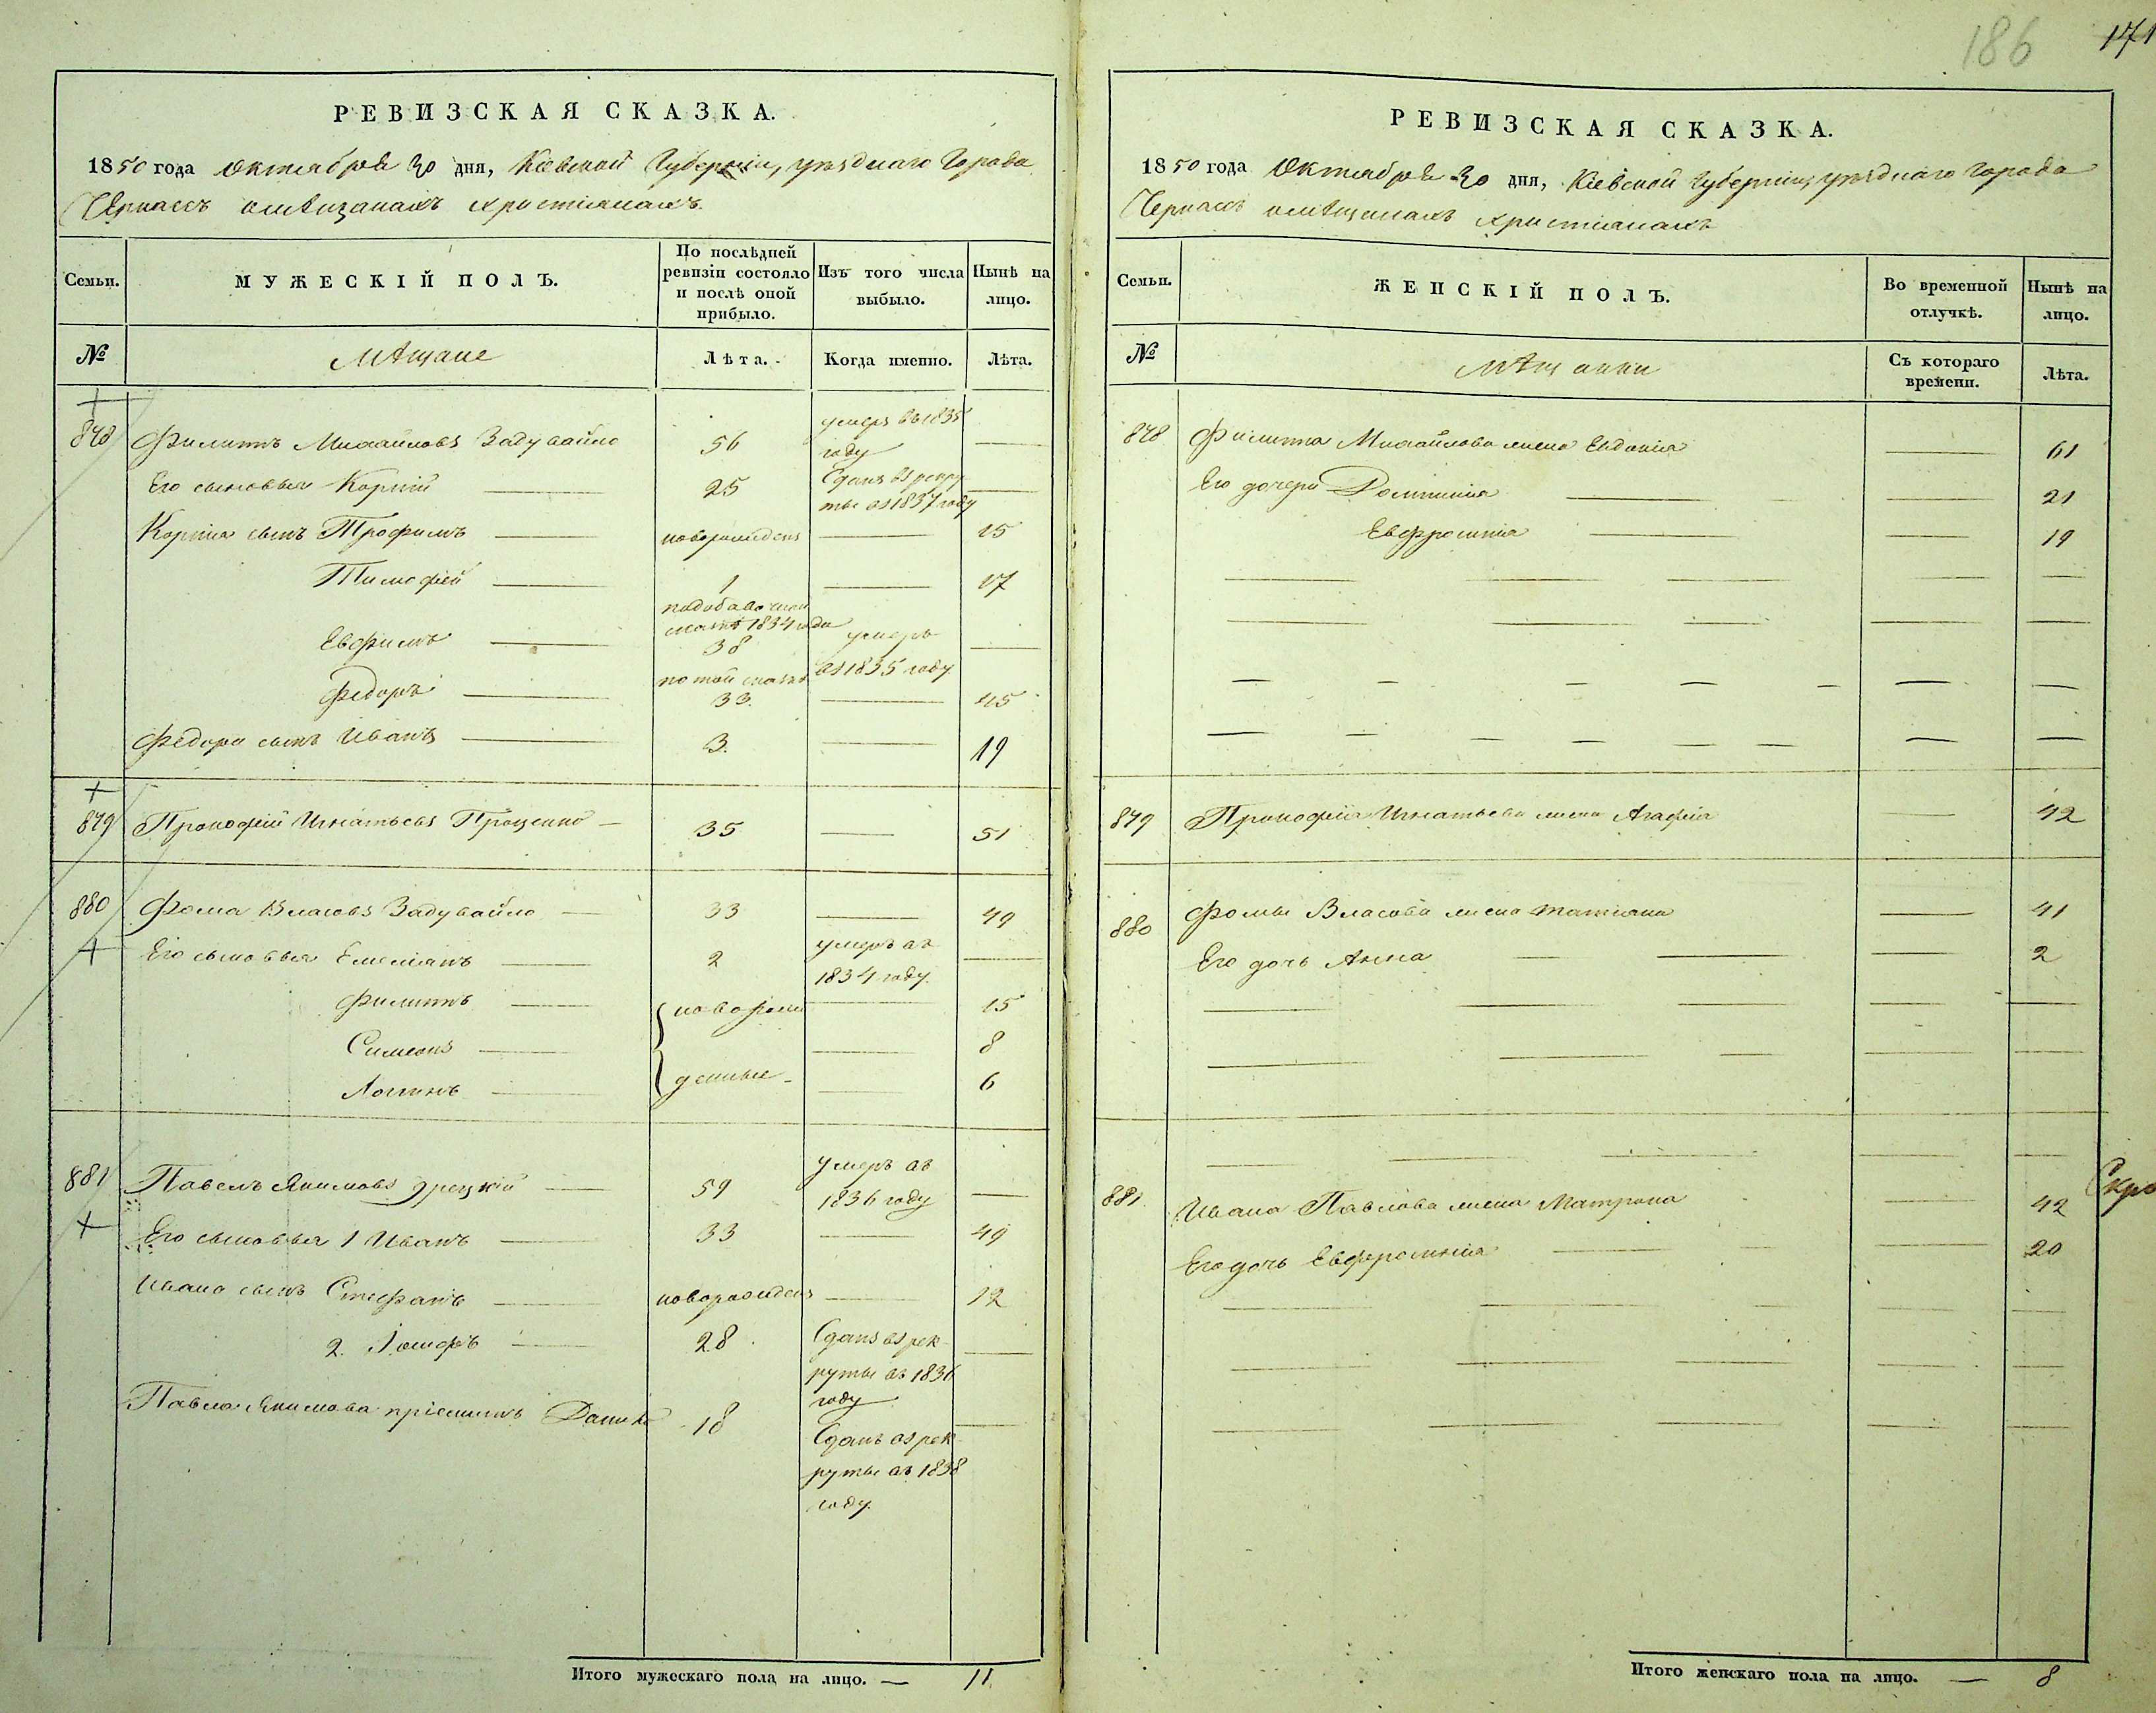 186 171
РЕВИЗСКАЯ СКАЗКА.
1850 года Октября 30 дня, Кіевской Губерніи, уѣзднаго Города
Черкассъ о мѣщанахъ христіянахъ.
Семьи.
МУЖЕСКІЙ ПОЛЪ.
По послѣдней ревизіи состояло и послѣ оной прибыло.
Изъ того числа выбыло.
Нынѣ на лицо.
№ Мѣщане Лѣта. Когда именно. Лѣта.
878 Филиппъ Михайловъ Задувайло 56 умеръ въ 1835 году —
Его сыновья Корній — 25 Сданъ въ рекруты въ 1837 году —
Корнія сынъ Трофимъ — новорожденъ — 15
Тимофей — 1 — 17
Евфимъ — по добавочной сказкѣ 1834 года 38 умеръ въ 1835 году. —
Федоръ — по той сказкѣ 33. — 45
Федора сынъ Иванъ — 3. — 19
879 Прокофій Игнатьевъ Проценко — 35 — 51
880 Фома Власовъ Задувайло — 33 — 49
Его сыновья Емеліанъ — 2 умеръ въ 1834 году. —
Филиппъ — новорож — 15
Симеонъ — — 8
Логинъ — денные — 6
881 Павелъ Якимовъ — 59 умеръ въ 1836 году —
Его сыновья 1 Иванъ — 33 — 49
Ивана сынъ Стефанъ — новорожденъ — 12
2. Іосифъ — 28. Сданъ въ рекруты въ 1836 году —
Павла Якимова пріемышъ Данило 18 Сданъ въ рекруты въ 1838 году. —
Итого мужескаго пола на лицо. — 11.
РЕВИЗСКАЯ СКАЗКА.
1850 года Октября 30 дня, Кіевской Губерніи, уѣзднаго Города
Черкассъ о мѣщанахъ христіянахъ
Семьи.
ЖЕНСКІЙ ПОЛЪ.
Во временной отлучкѣ.
Нынѣ на лицо.
№ Мѣщанки Съ котораго времени. Лѣта.
878 Филиппа Михайлова жена Евдокія — 61
Его дочери Домникія — — 21
Евфросинія — — 19
879 Прокофія Игнатьева жена Агафія — 42
880 Фомы Власова жена Татіяна — 41
Его дочь Анна — — — 2
881. Ивана Павлова жена Матрона — 42
Его дочь Евфросинія — — — 20
Скрѣ
Итого женскаго пола на лицо. — 8